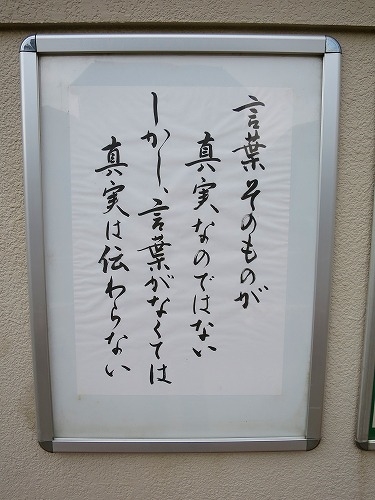 言葉そのものが
真実なのではない
しかし、言葉がなくては
真実は伝わらない